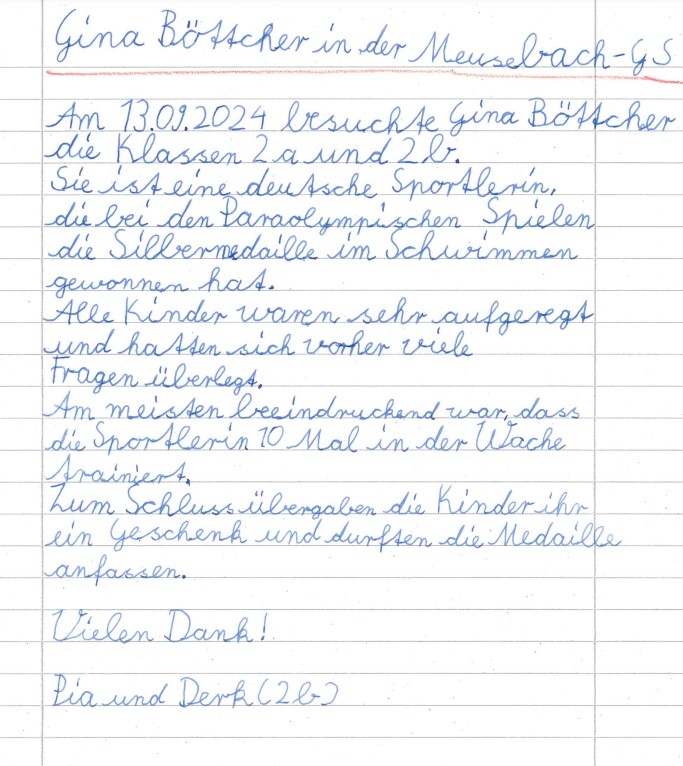 Gina Böttcher in der Meusebach-GS
Am 13.09.2024 besuchte Gina Böttcher
die Klassen 2a und 2b.
Sie ist eine deutsche Sportlerin,
die bei den Paraolympischen Spielen
die Silbermedaille im Schwimmen
gewonnen hat.
Alle Kinder waren sehr aufgeregt
und hatten sich vorher viele
Fragen überlegt.
Am meisten beeindruckend war, dass
die Sportlerin 10 Mal in der Woche
trainiert.
Zum Schluss übergaben die Kinder ihr
ein Geschenk und durften die Medaille
anfassen.
Vielen Dank!
Pia und Derk (2b)